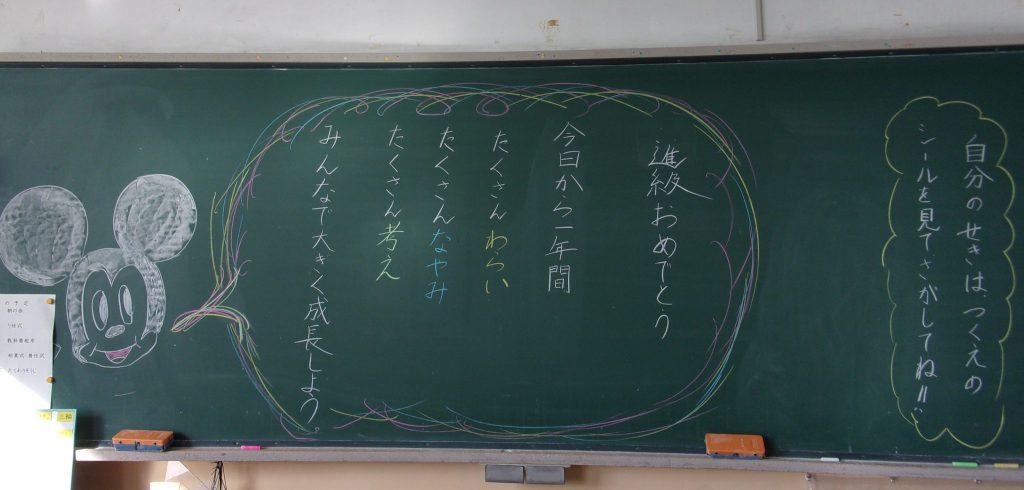 自分のせきは、つくえの
シールを見てさがしてね!!
進級おめでとう
今日から一年間
たくさんわらい
たくさんなやみ
たくさん考え
みんなで大きく成長しよう。
の予定
朝の会
教科書配布